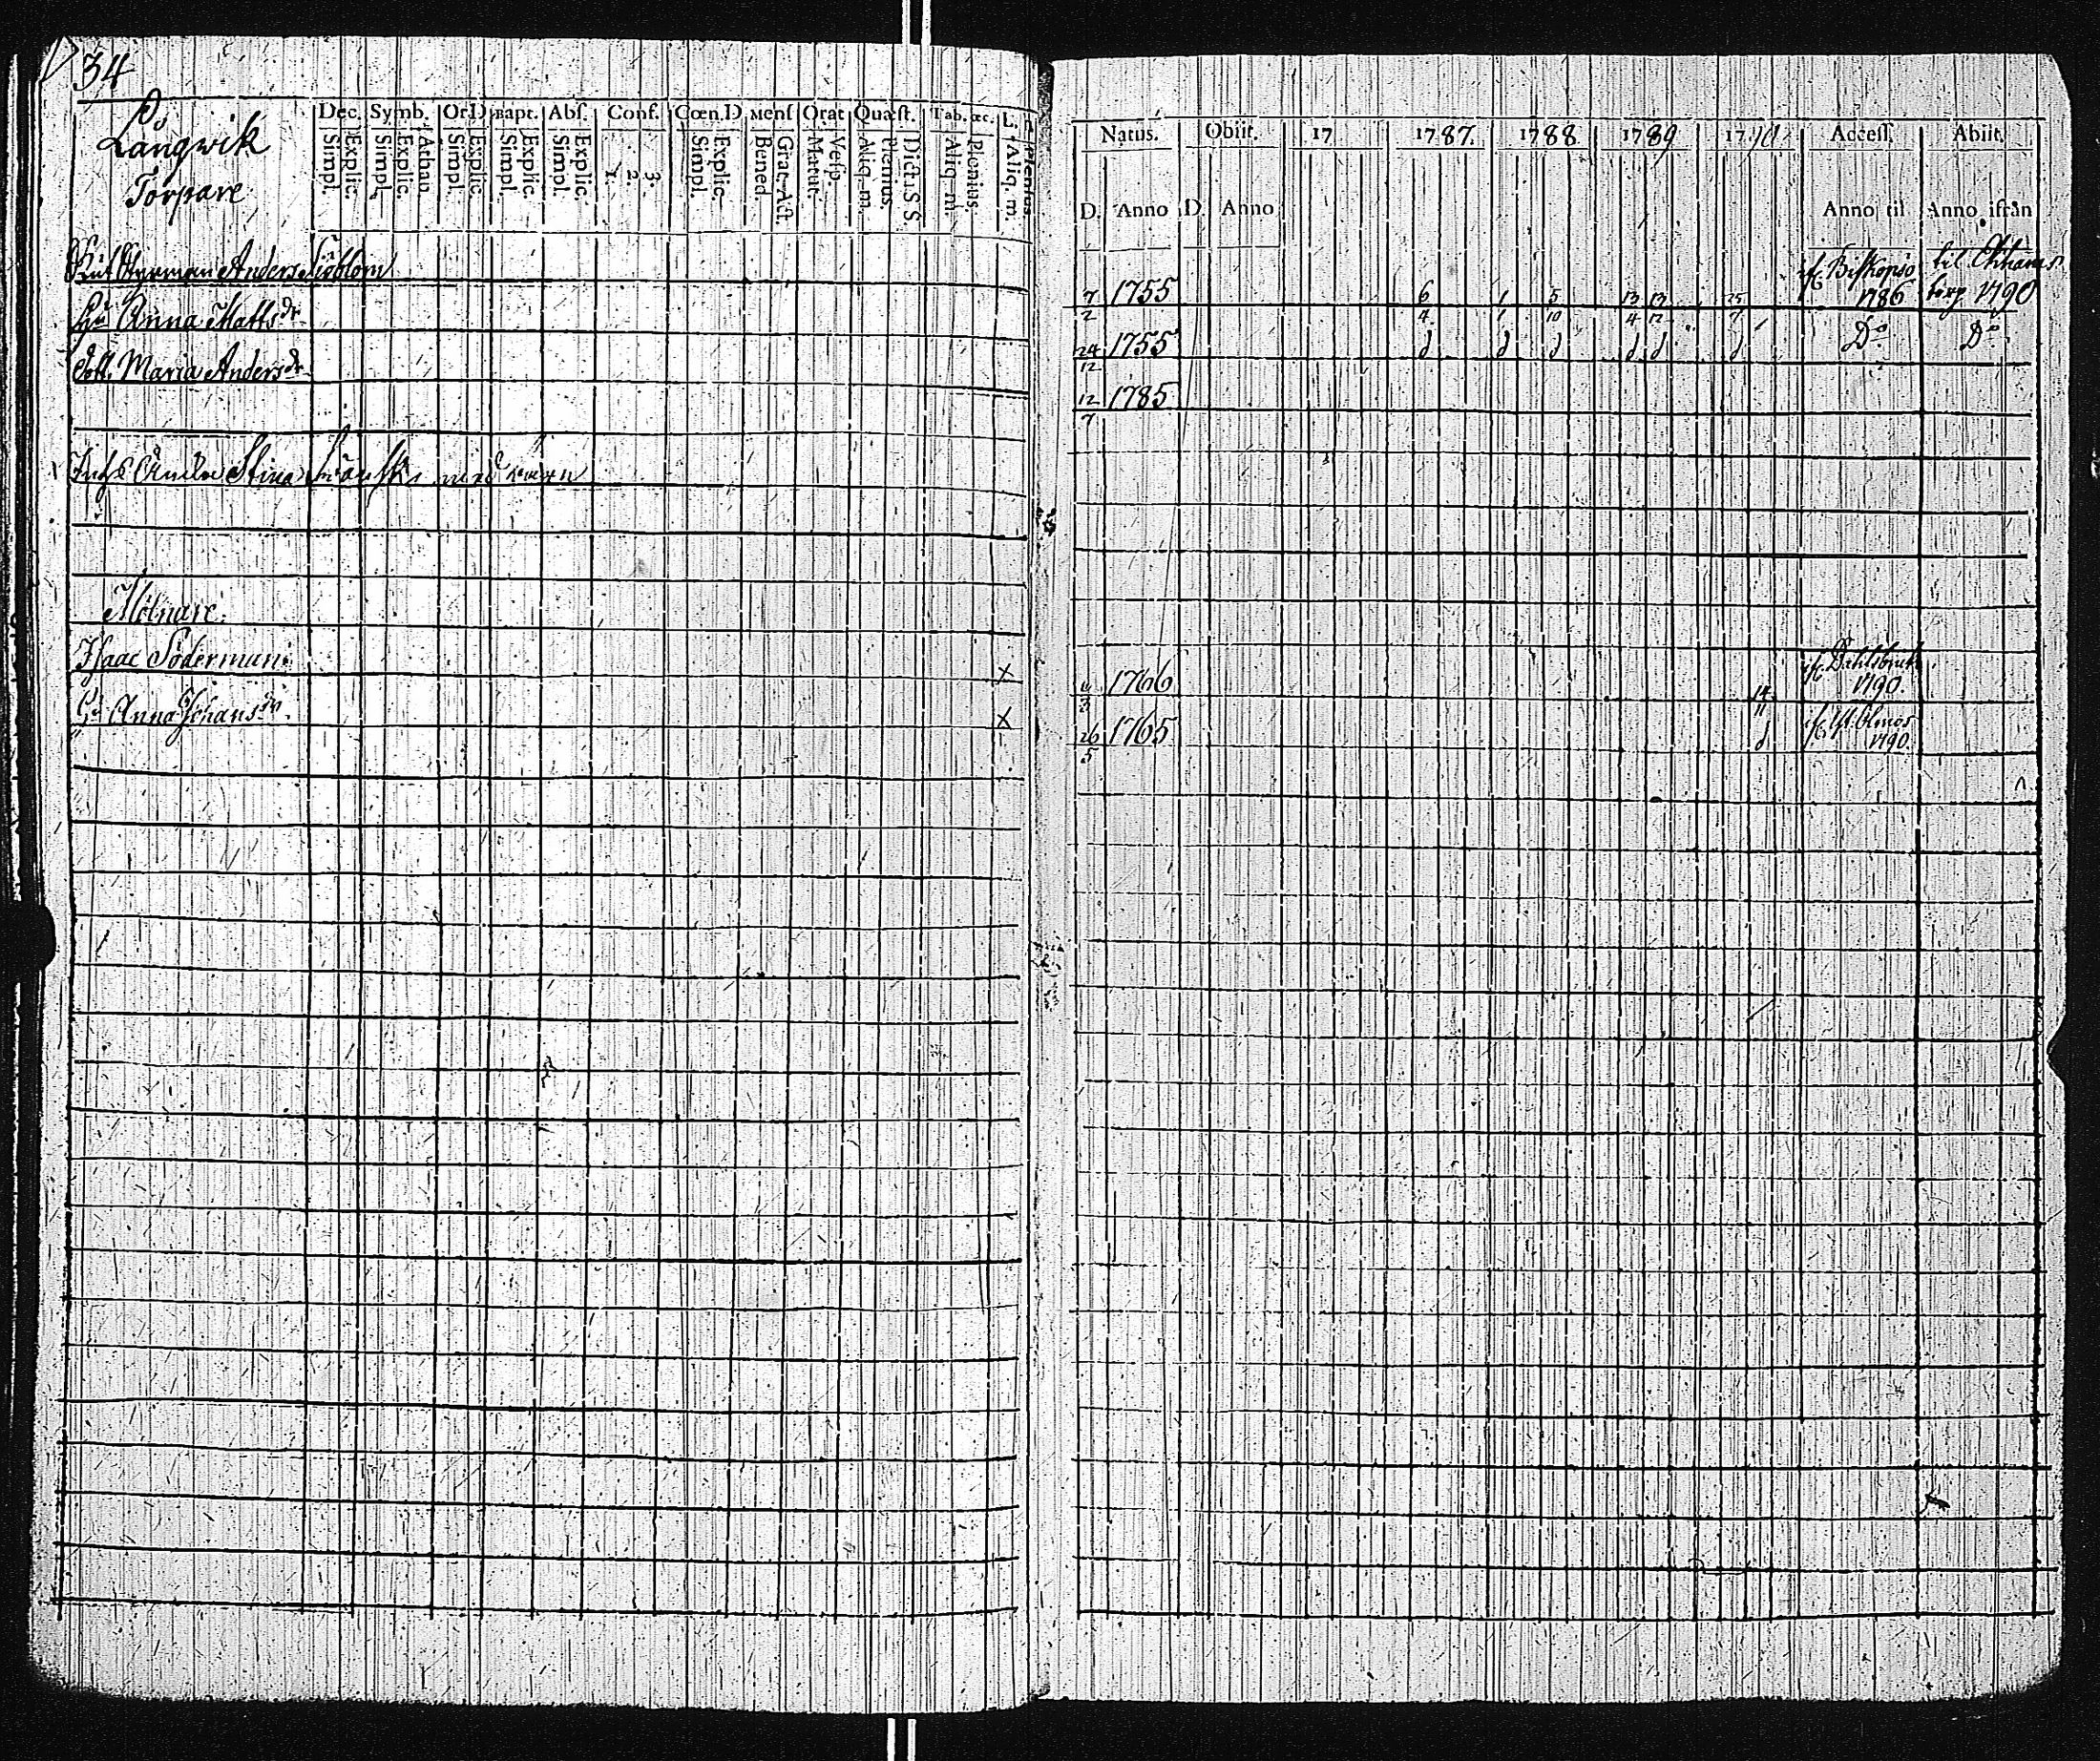 34
Långwik
Torpare
Dec. Symb. Or.D Bapt. Abſ. Conf. Cœn.D Menſ Orat Quæſt. Tab. œc. L.
Simpl. Explic. Simpl. Explic. Athan. Simpl. Explic. Simpl. Explic. Simpl. Explic. 1. 2. 3. Simpl. Explic. Bened. Grat. Act. Matut. Veſp. Aliq. m. Plenius. Dicta S S. Aliq. m. Plenius. Aliq. m. Plenius
Anders Siöblom
Hu Anna Matts dr
Dott. Maria Anders dr
Stina
Mölnare.
Isaac Söderman
Hu Anna Johans dr
x
x
Natus. Obiit. 17 1787. 1788 1789 1790. Acceſſ. Abiit.
D. Anno D. Anno Anno til Anno ifrån
7/2 1755 6/4 1/1 5/10 13/4 13/12 25/7 if. Biskopsö 1786 til torp 1790
24/12 1755 d d d d d d Do Do
12/7 1785
1766 14/11 if. Dahlsbruk 1790.
26/5 1765 d if. 1790.